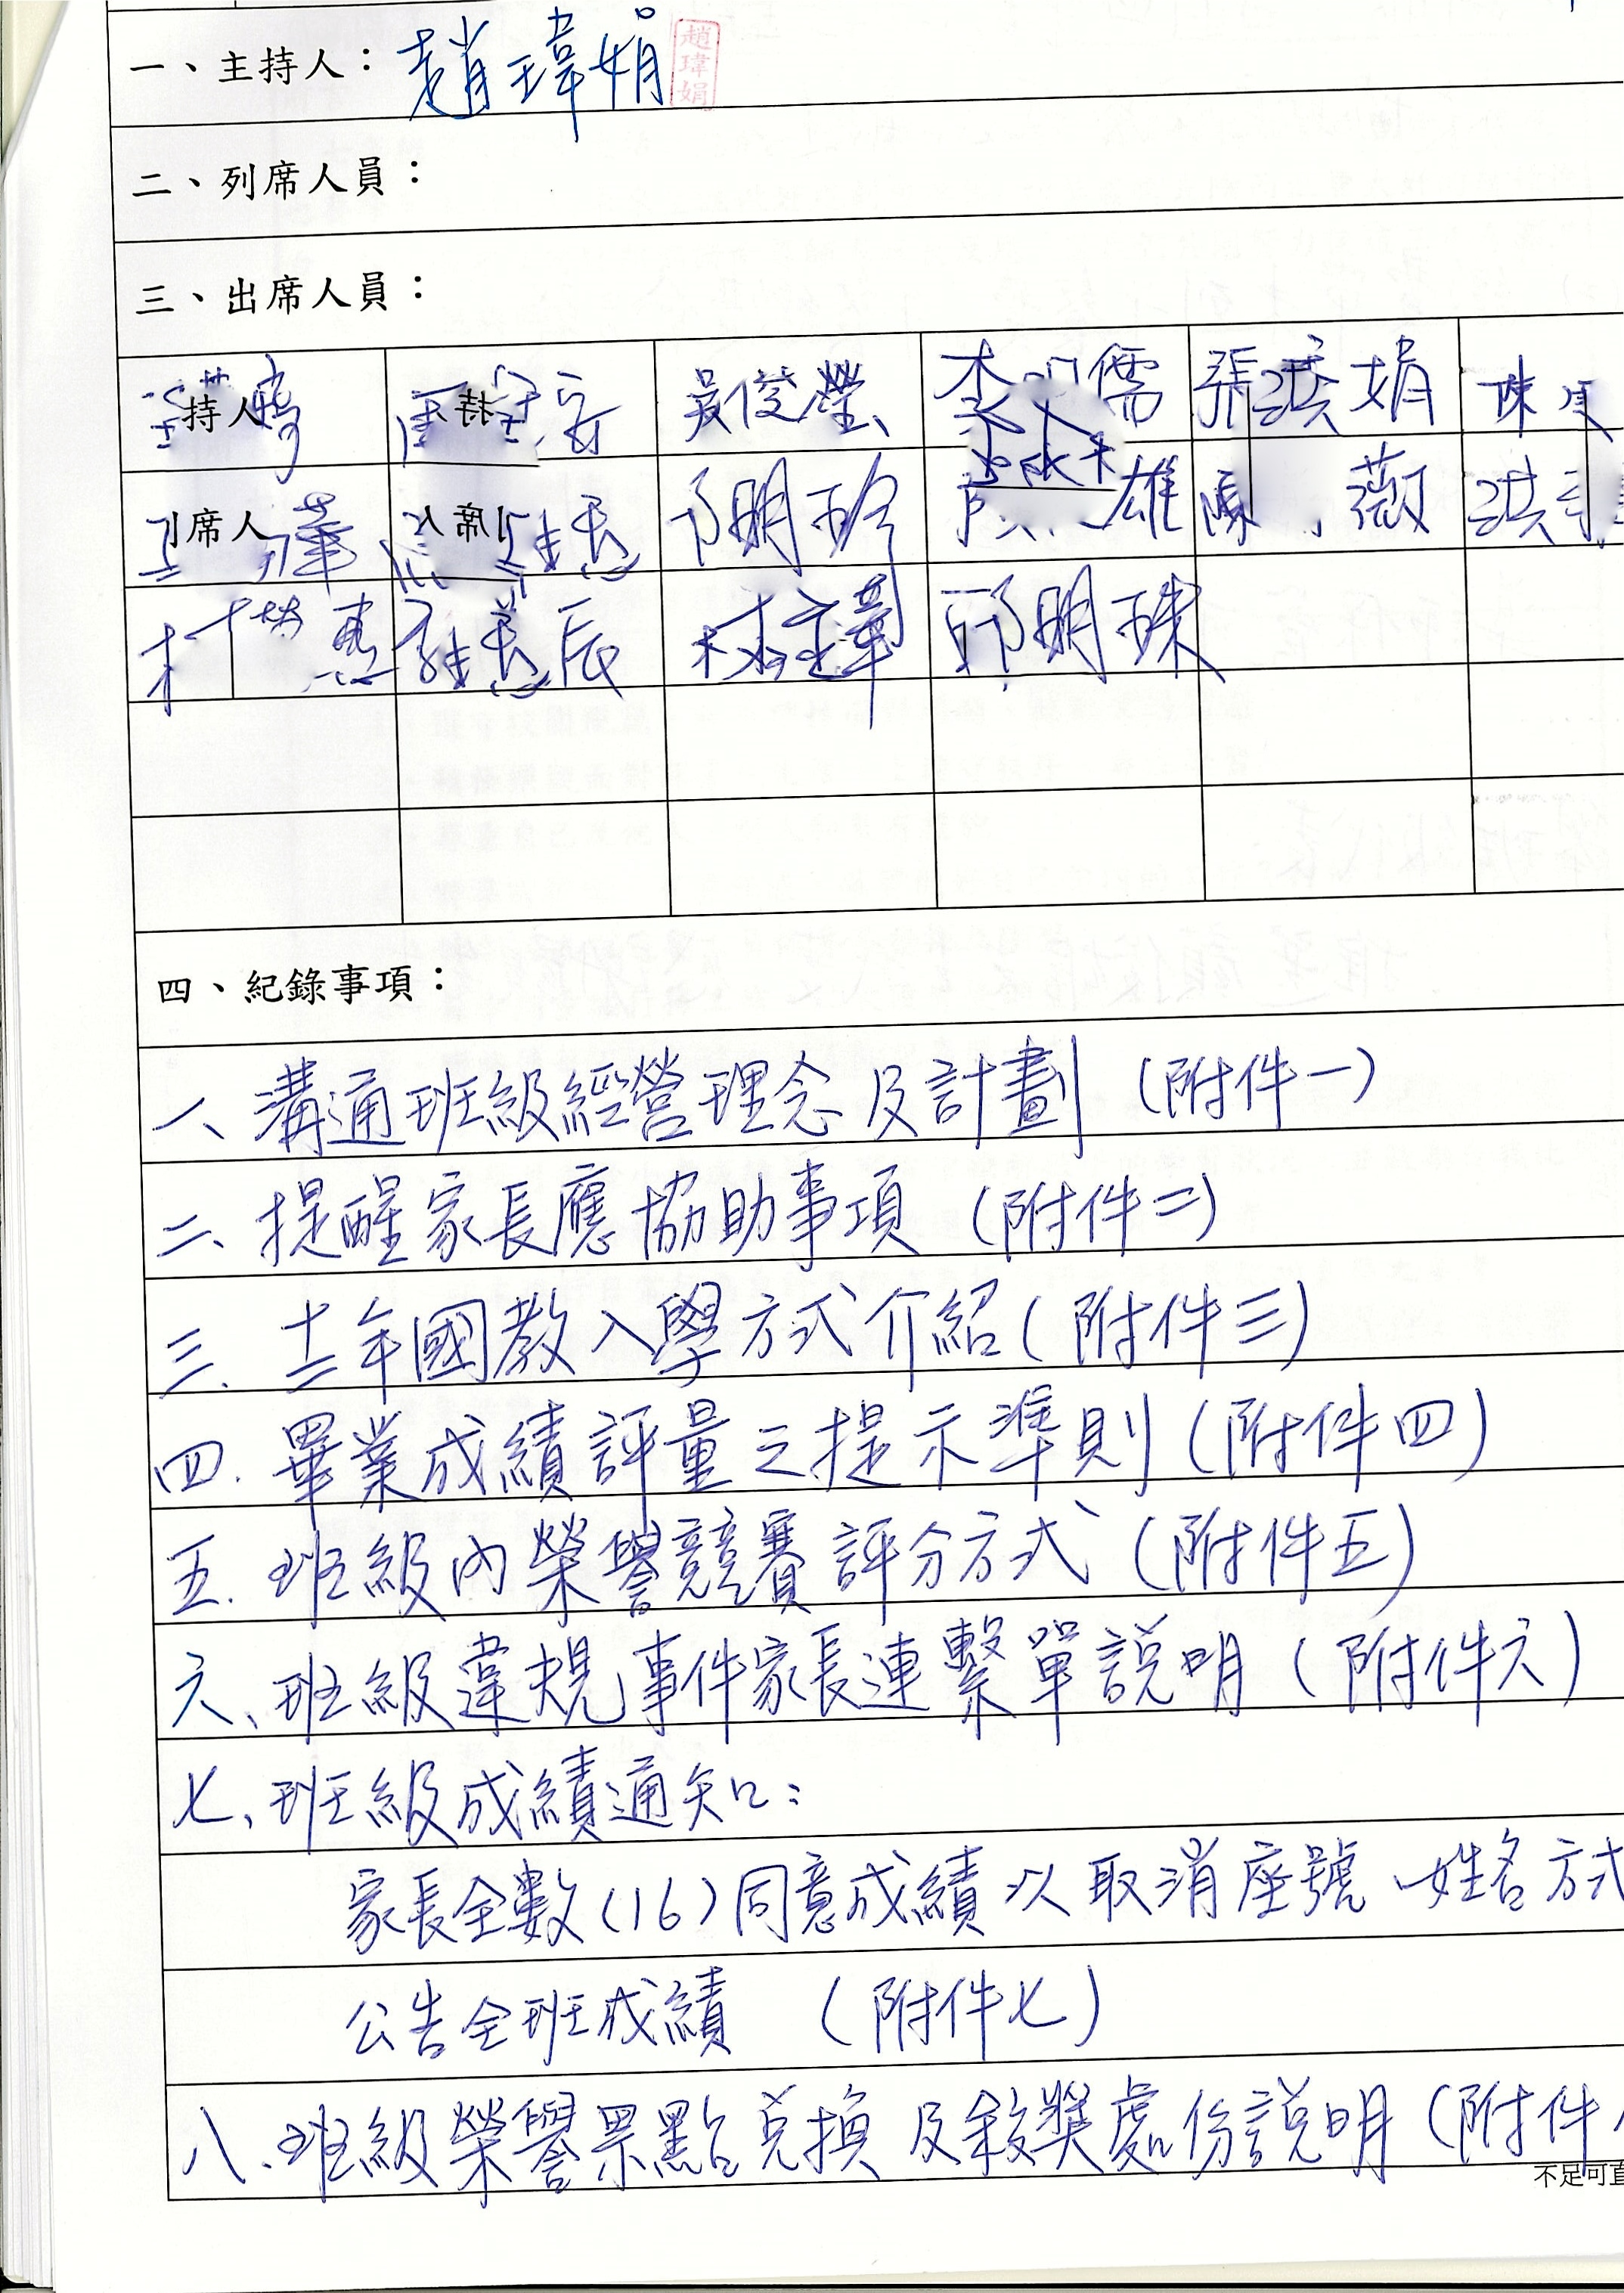 一、主持人：趙瑋娟 趙瑋娟
二、列席人員：
三、出席人員：
持人 持 吳俊瑩 李 儒 張 娟 陳
席人 席 邱明珍 雄 陳 薇 洪
惠 辰 林 邱明珠
四、紀錄事項：
一、溝通班級經營理念及計劃（附件一）
二、提醒家長應協助事項（附件二）
三、十二年國教入學方式介紹（附件三）
四、畢業成績評量之提示準則（附件四）
五、班級內榮譽競賽評分方式（附件五）
六、班級違規事件家長連繫單說明（附件六）
七、班級成績通知：
家長全數(16)同意成績以取消座號、姓名方式
公告全班成績 （附件七）
八、班級榮譽票點兌換及敘獎處份說明（附件
不足可直